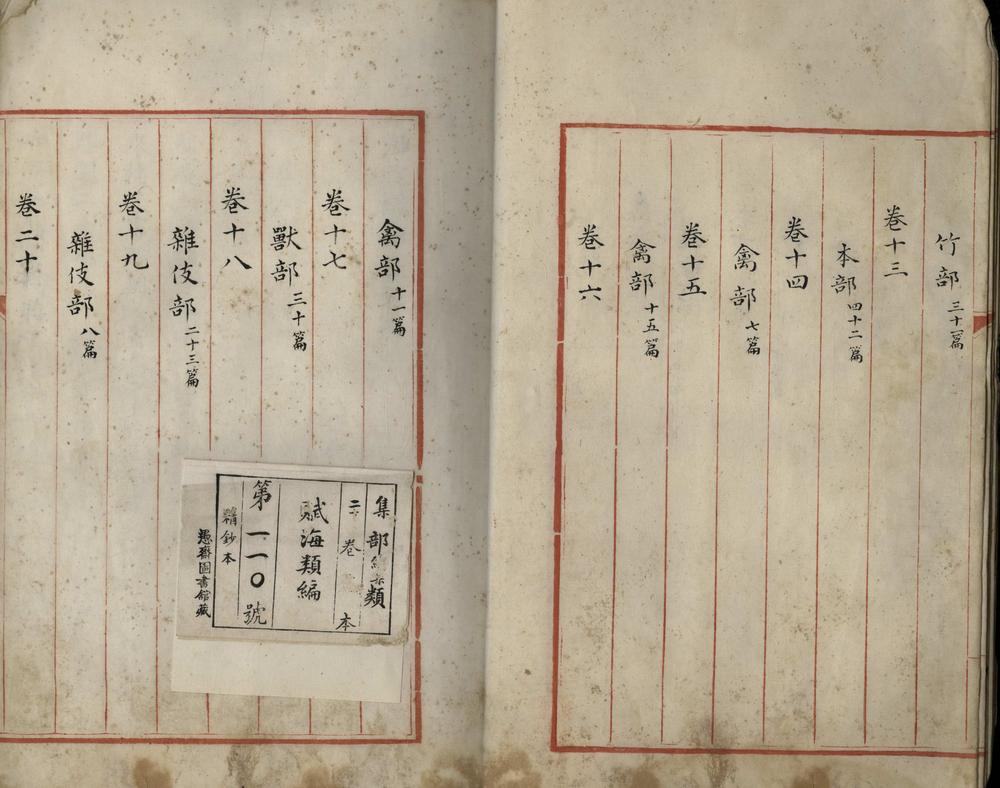 竹部 三十一篇
卷十三
本部 四十二篇
卷十四
禽部 七篇
卷十五
禽部 十五篇
卷十六
禽部 十一篇
卷十七
獸部 三十篇
卷十八
雜伎部 二十三篇
卷十九
雜伎部 八篇
卷二十
集部 類
二十卷 本
賦海類編
第一一〇號
精鈔本
愚齋圖書館藏